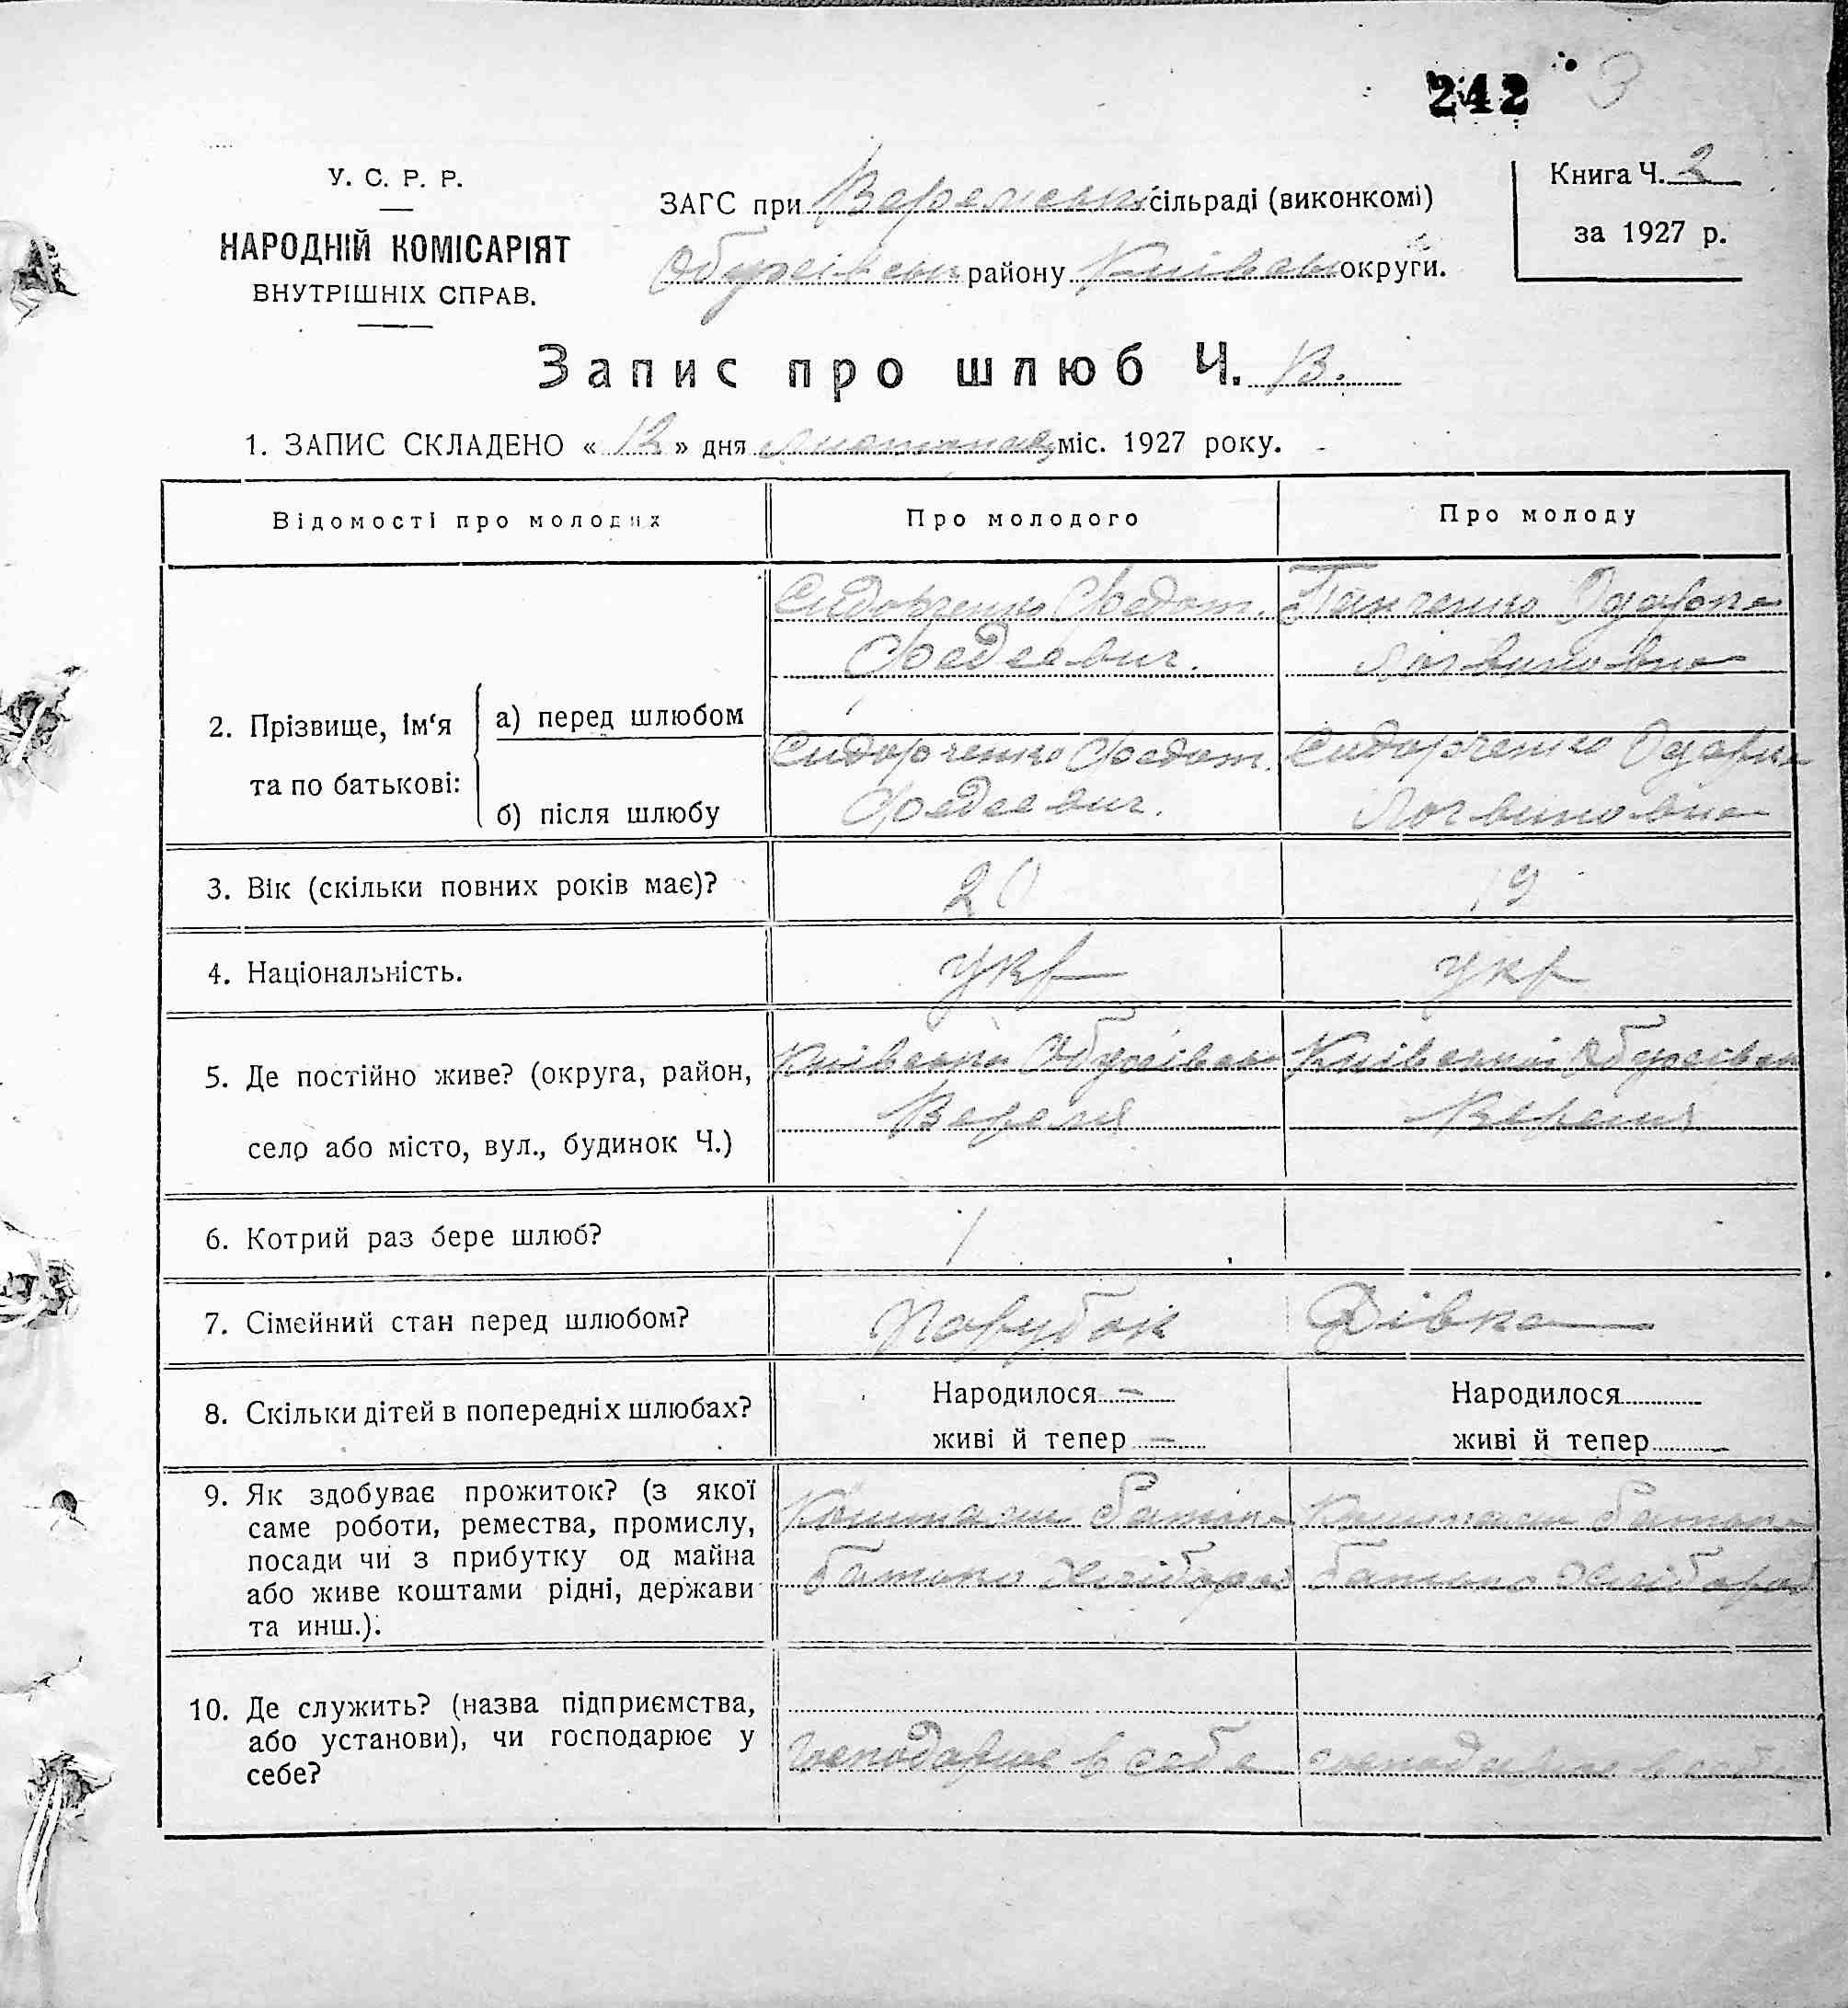 242 3
У. С. Р. Р.
НАРОДНІЙ КОМІСАРІЯТ
ВНУТРІШНІХ СПРАВ.
ЗАГС при Веремськ сільраді (виконкомі)
Обухівськ району Київськ округи.
Книга Ч. 2
за 1927 р.
Запис про шлюб Ч. 13.
1. ЗАПИС СКЛАДЕНО « 12 » дня міс. 1927 року.
Відомості про молодих
Про молодого
Про молоду
2. Прізвище, ім‘я та по батькові:
а) перед шлюбом
Сидорченко Федот.
Фадеевич.
Панченко Одарка
Логвиновна
б) після шлюбу
Сидорченко Федот.
Фадеевич.
Сидорченко Одарка
Логвиновна
3. Вік (скільки повних років має)?
20
19
4. Національність.
укр
укр
5. Де постійно живе? (округа, район,
село або місто, вул., будинок Ч.)
Київська Обухівськ
Веремя
Київський Обухівськ
Веремя
6. Котрий раз бере шлюб?
1
7. Сімейний стан перед шлюбом?
Парубок
Дівка
8. Скільки дітей в попередніх шлюбах?
Народилося —
живі й тепер —
Народилося
живі й тепер
9. Як здобуває прожиток? (з якої
саме роботи, ремества, промислу,
посади чи з прибутку од майна
або живе коштами рідні, держави
та инш.).
Коштами батька
батько хлібороб
Коштами батька
батько хлібороб
10. Де служить? (назва підприємства,
або установи), чи господарює у
себе?
господарює в себе
господарює в себе